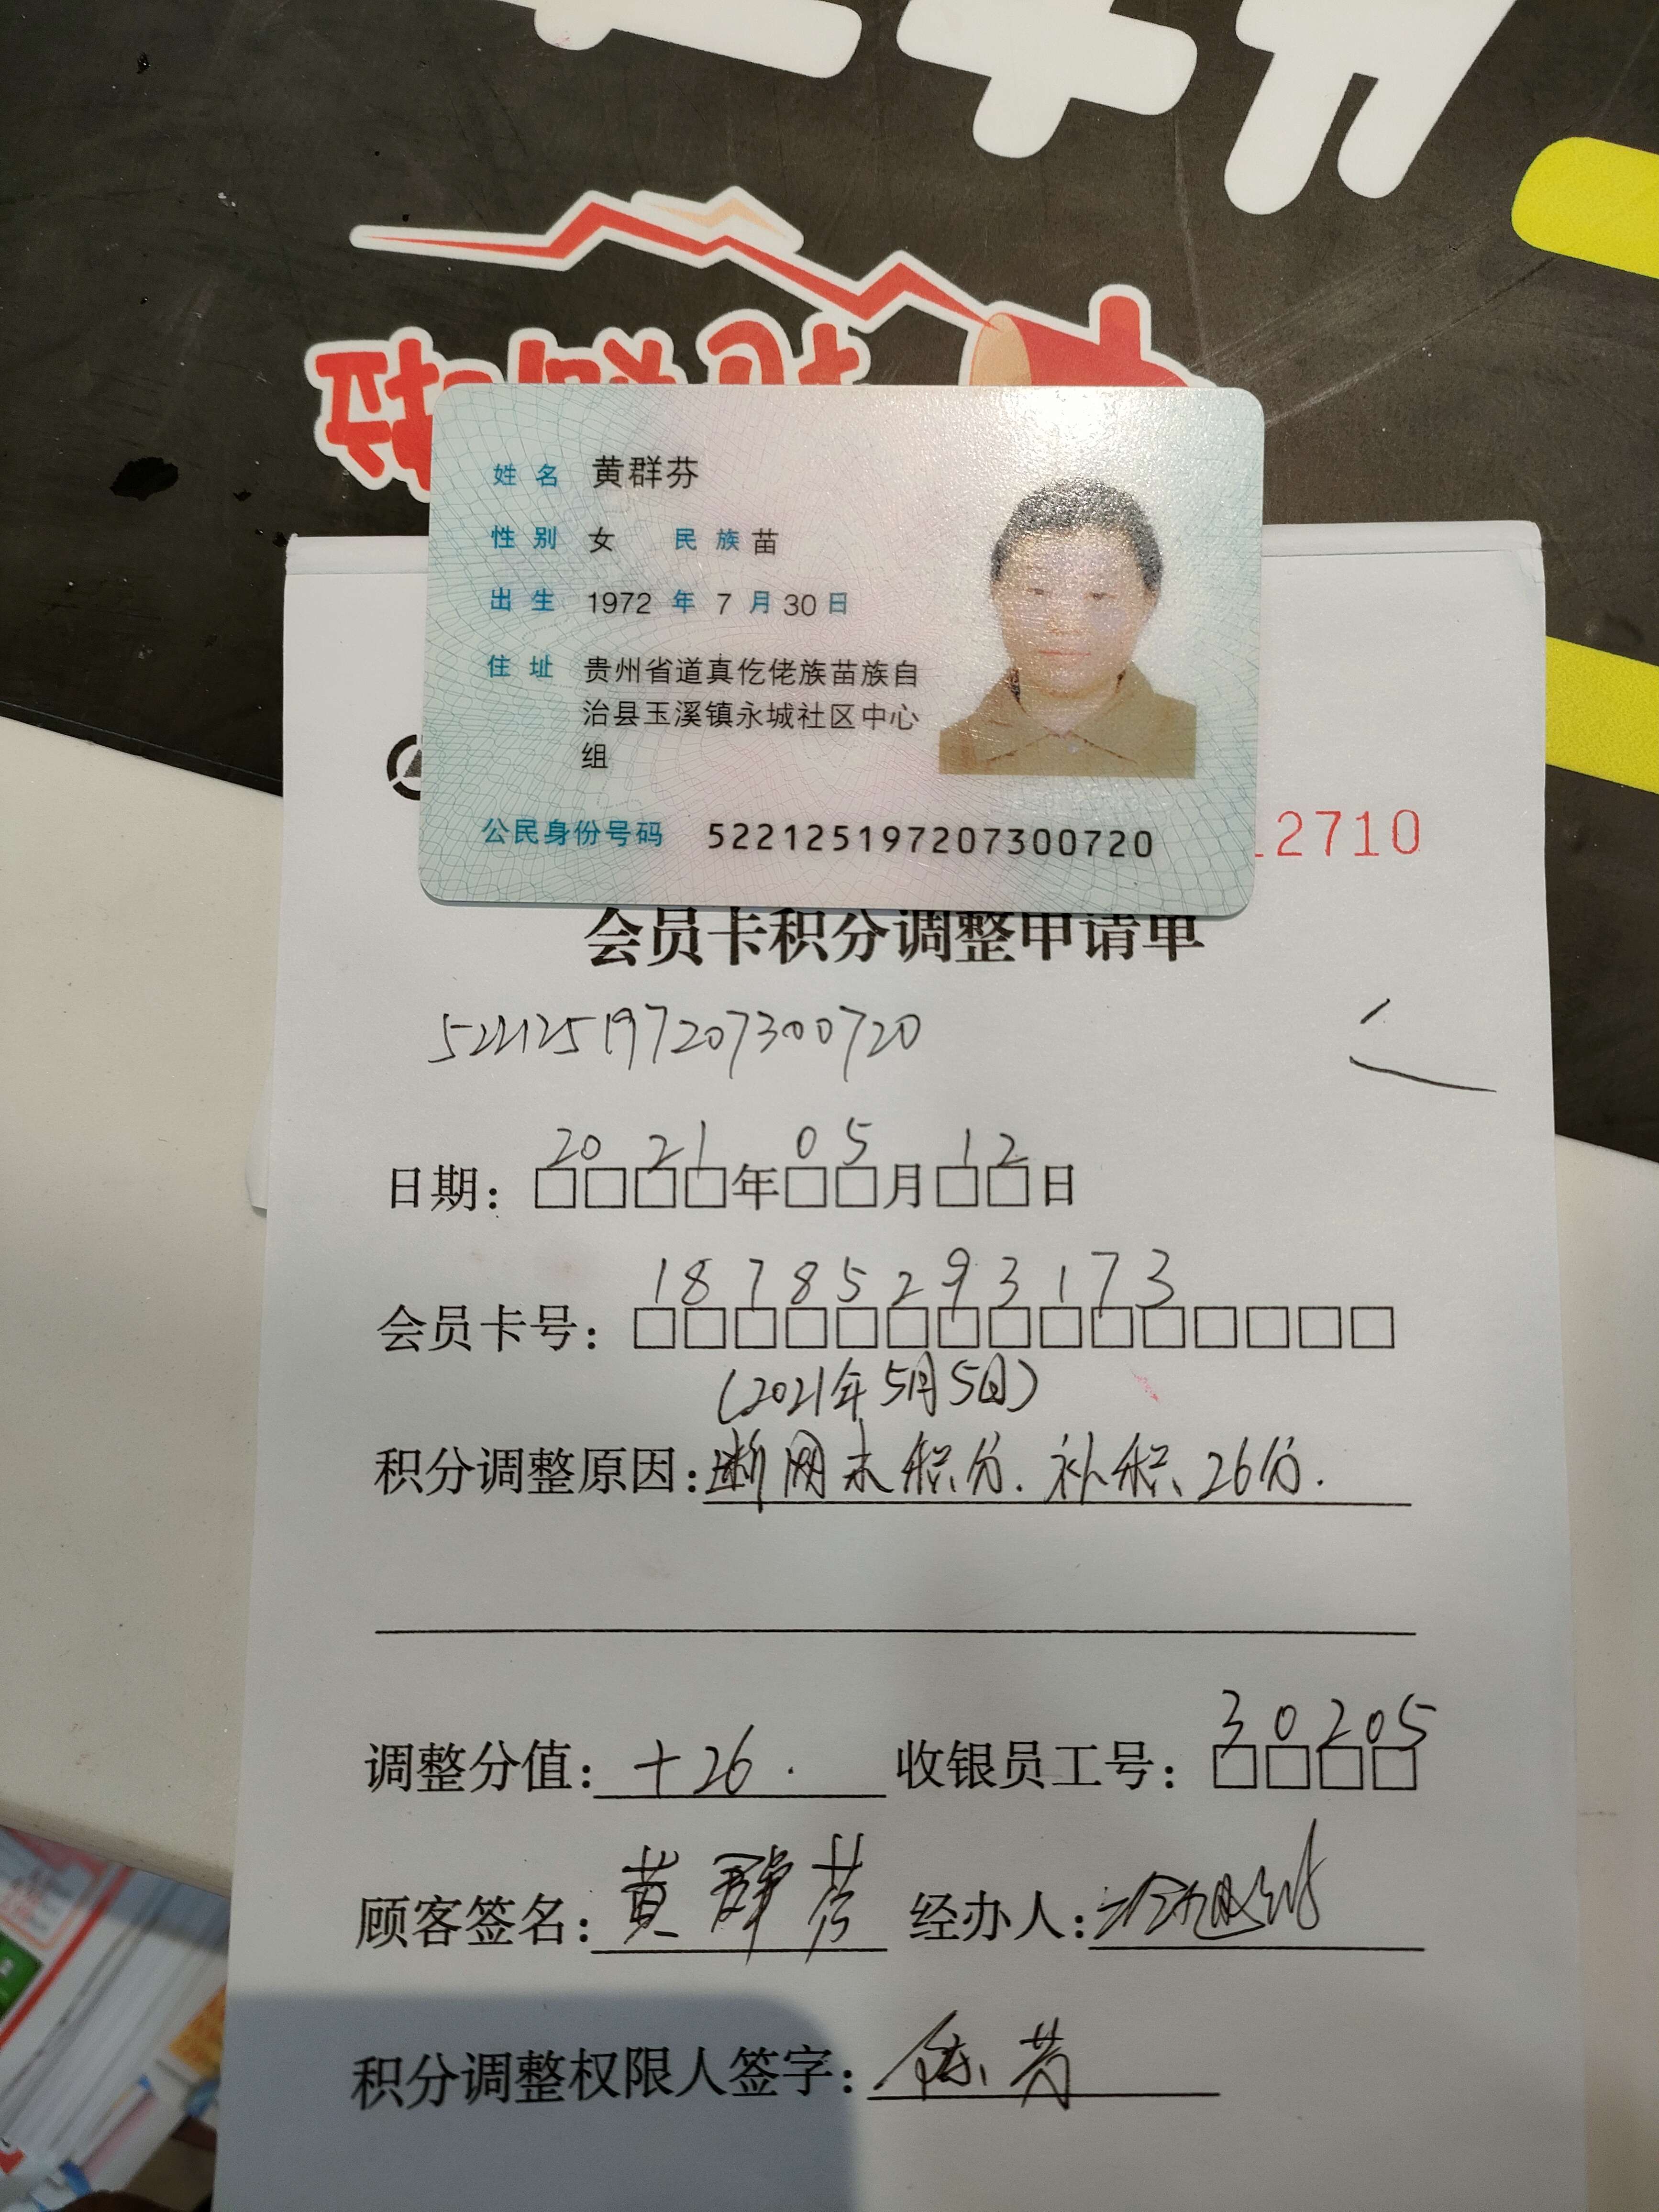 姓名 黄群芬
性别 女 民族 苗
出生 1972 年 7 月 30 日
住址 贵州省道真仡佬族苗族自
治县玉溪镇永城社区中心
组
公民身份号码 522125197207300720
2710
会员卡积分调整申请单
522125197207300720
日期：2021年05月12日
会员卡号：18785293173
(2021年5月5日)
积分调整原因：断网未积分.补积26分.
调整分值：+26. 收银员工号：30205
顾客签名：黄群芬 经办人：
积分调整权限人签字：